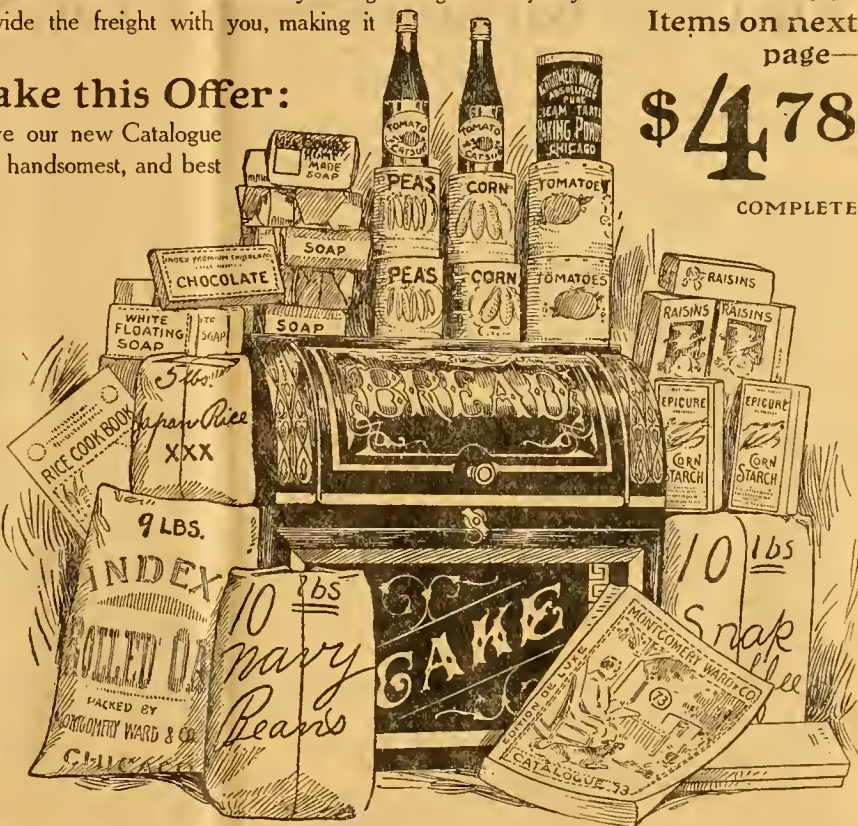 vide the freight with you, making it
ake this Offer:
e our new Catalogue
handsomest, and best
Items on next
page—
$4 78
COMPLETE
TOMATO
CATSUP
TOMATO
CATSUP
MONTGOMERY WARD &
ABSOLUTELY
PURE
CREAM TARTAR
BAKING POWDER
CHICAGO
HOME
MADE
SOAP
SOAP
SOAP
PEAS
CORN
TOMATOES
PEAS
CORN
TOMATOES
INDEX PREMIUM CHOCOLATE
CHOCOLATE
WHITE
FLOATING
SOAP
SOAP
RAISINS
RAISINS
RAISINS
EPICURE
CORN
STARCH
EPICURE
CORN
STARCH
RICE COOK BOOK
5 lbs.
Japan Rice
XXX
BREAD
CAKE
9 LBS.
INDEX
ROLLED OA
PACKED BY
MONTGOMERY WARD & CO
CHICAGO
10 lbs
Navy
Beans
10 lbs
Snap
ffee
MONTGOMERY WARD & CO.
73
EDITION DE LUXE
CATALOGUE 73